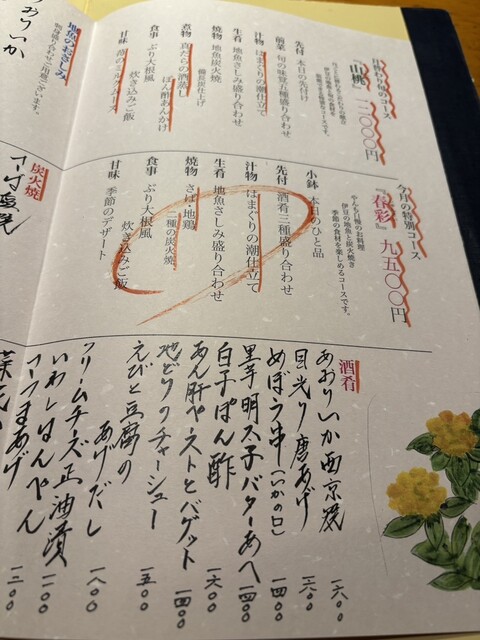 日替わり旬のコース
『山桃』一二〇〇〇円
先付 本日の先付け
前菜 旬の味覚五種盛り合わせ
汁物 はまぐりの潮仕立て
生肴 地魚さしみ盛り合わせ
焼物 地魚炭火焼
備長炭仕上げ
煮物 真だらの酒蒸し
ぽん酢あんかけ
食事 ぶり大根風
炊き込みご飯
甘味 苺のミルクムース
地魚のおさしみ
あおりいか
今月の特別コース
『春彩』九五〇〇円
やんも自慢のお料理
伊豆の地魚と炭火焼き
季節の食材を楽しめるコースです。
小鉢 本日のひと品
先付 酒肴三種盛り合わせ
汁物 はまぐりの潮仕立て
生肴 地魚さしみ盛り合わせ
焼物 さば・地鶏
二種の炭火焼
食事 ぶり大根風
炊き込みご飯
甘味 季節のデザート
炭火焼
酒肴
あおりいか西京焼 一六〇〇
目光り唐あげ 一二〇〇
めぼう串(いかの口) 一四〇〇
黒辛明太子バターあへ 一四〇〇
白子ぽん酢 一六〇〇
あん肝ペーストとバゲット 一四〇〇
地どりのチャーシュー
えびと豆腐の
あげだし 一五〇〇
クリームチーズ正油漬 一八〇〇
いわしはんぺん 一一〇〇
さつまあげ 一二〇〇